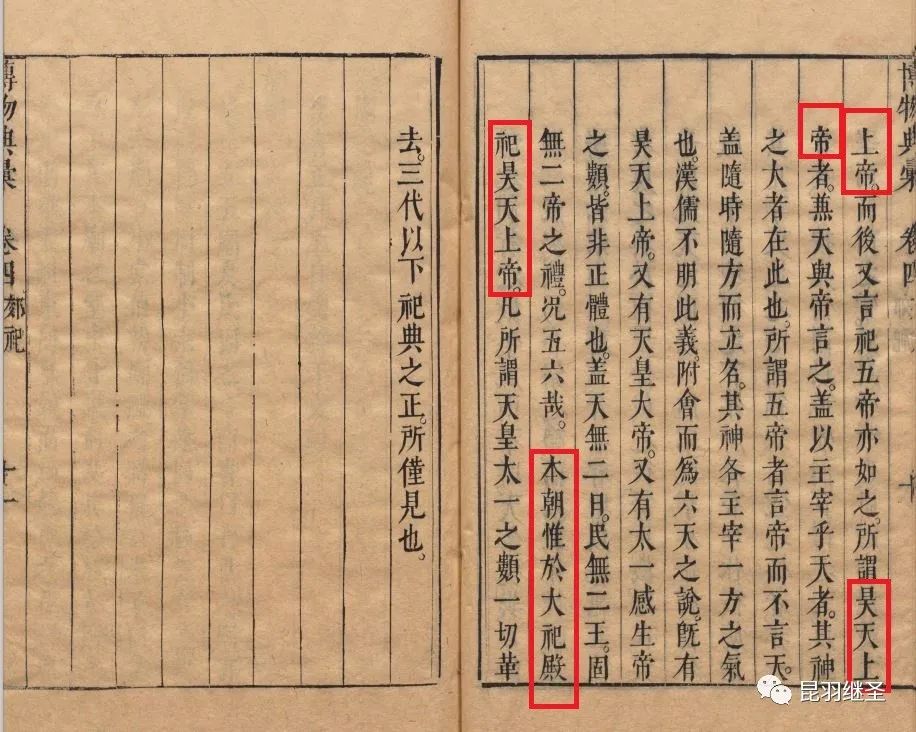 博物典彙 卷四 十
上帝。而後又言祀五帝亦如之。所謂昊天上
帝者。兼天與帝言之。盖以主宰乎天者。其神
之大者在此也。所謂五帝者言帝而不言天。
盖隨時隨方而立名。其神各主宰一方之氣
也。漢儒不明此義。附會而爲六天之說。旣有
昊天上帝。又有天皇大帝。又有太一感生帝
之類。皆非正體也。盖天無二日。民無二王。固
無二帝之禮。况五六哉。本朝惟於大祀殿
祀昊天上帝。凡所謂天皇太一之類一切革
去。三代以下祀典之正。所僅見也。
博物典彙 卷四 郊祀 十一
昆羽继圣